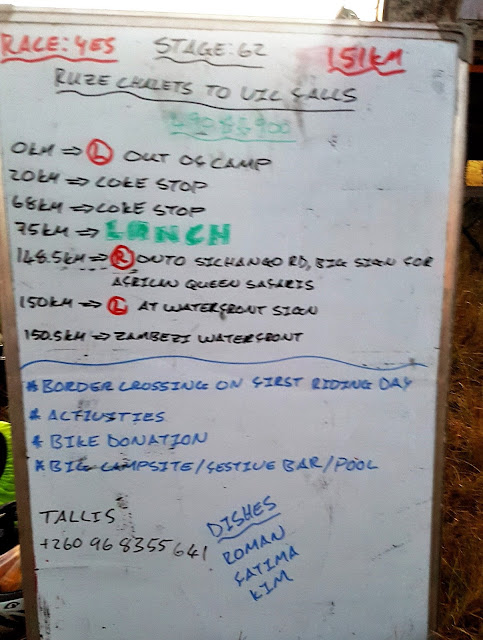 RACE: YES STAGE: 62 151KM
RUZE CHALETS TO VIC FALLS
0KM ⇒ Ⓛ OUT OF CAMP
20KM ⇒ COKE STOP
68KM ⇒ COKE STOP
75KM ⇒ LUNCH
148.5KM ⇒ Ⓡ ONTO SICHANGO RD, BIG SIGN FOR
AFRICAN QUEEN SAFARIS
150KM ⇒ Ⓛ AT WATERFRONT SIGN
150.5KM ⇒ ZAMBEZI WATERFRONT
* BORDER CROSSING ON FIRST RIDING DAY
* ACTIVITIES
* BIKE DONATION
* BIG CAMPSITE/FESTIVE BAR/POOL
TALLIS
+260 96 8355 641
DISHES
ROMAN
FATIMA
KIM